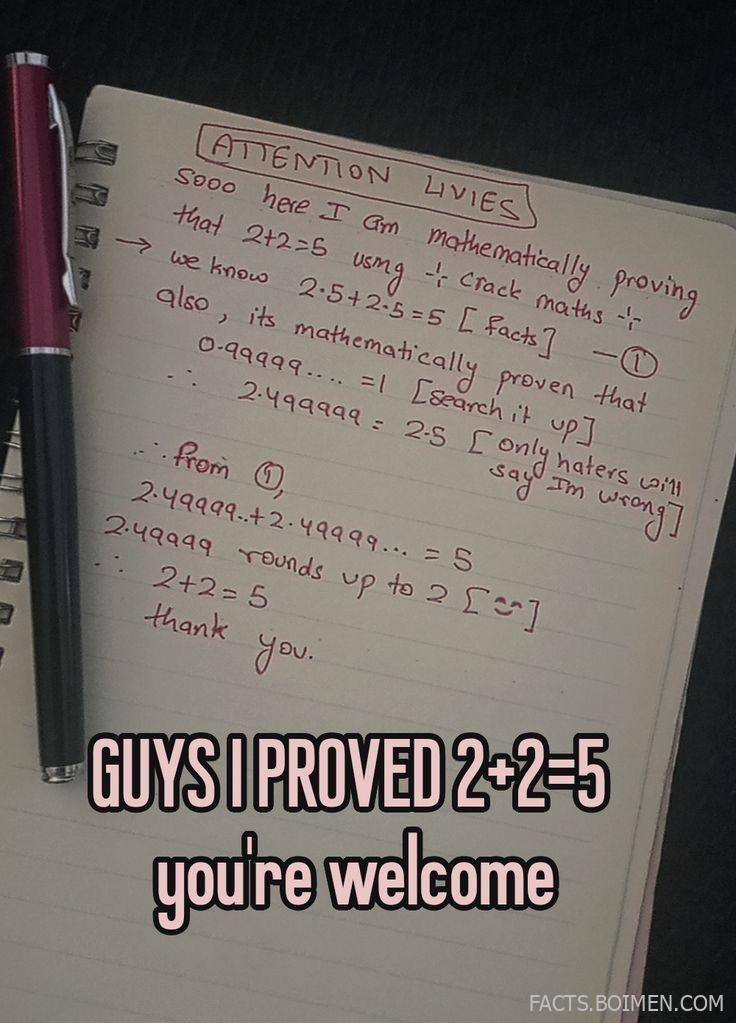 ATTENTION LIVIES
Sooo here I am mathematically proving
that 2+2=5 using ⊹ crack maths ⊹
→ we know 2.5+2.5=5 [facts] —①
also, its mathematically proven that
0.99999.... =1 [search it up]
∴ 2.499999 = 2.5 [only haters will
say Im wrong]
∴ from ①,
2.49999..+2.49999... = 5
2.49999 rounds up to 2 [
∴ 2+2=5
thank you.
GUYS I PROVED 2+2=5
you're welcome
FACTS.BOIMEN.COM